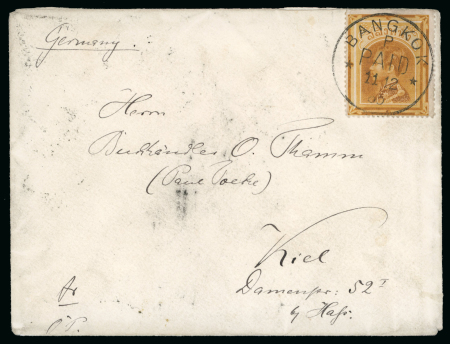 Germany.
BANGKOK
P
PAID
11 12
Herrn
Buchhändler O. Thamm
(Paul Toeche)
Kiel
Damenstr: 52 I
b/ Haß.
fr